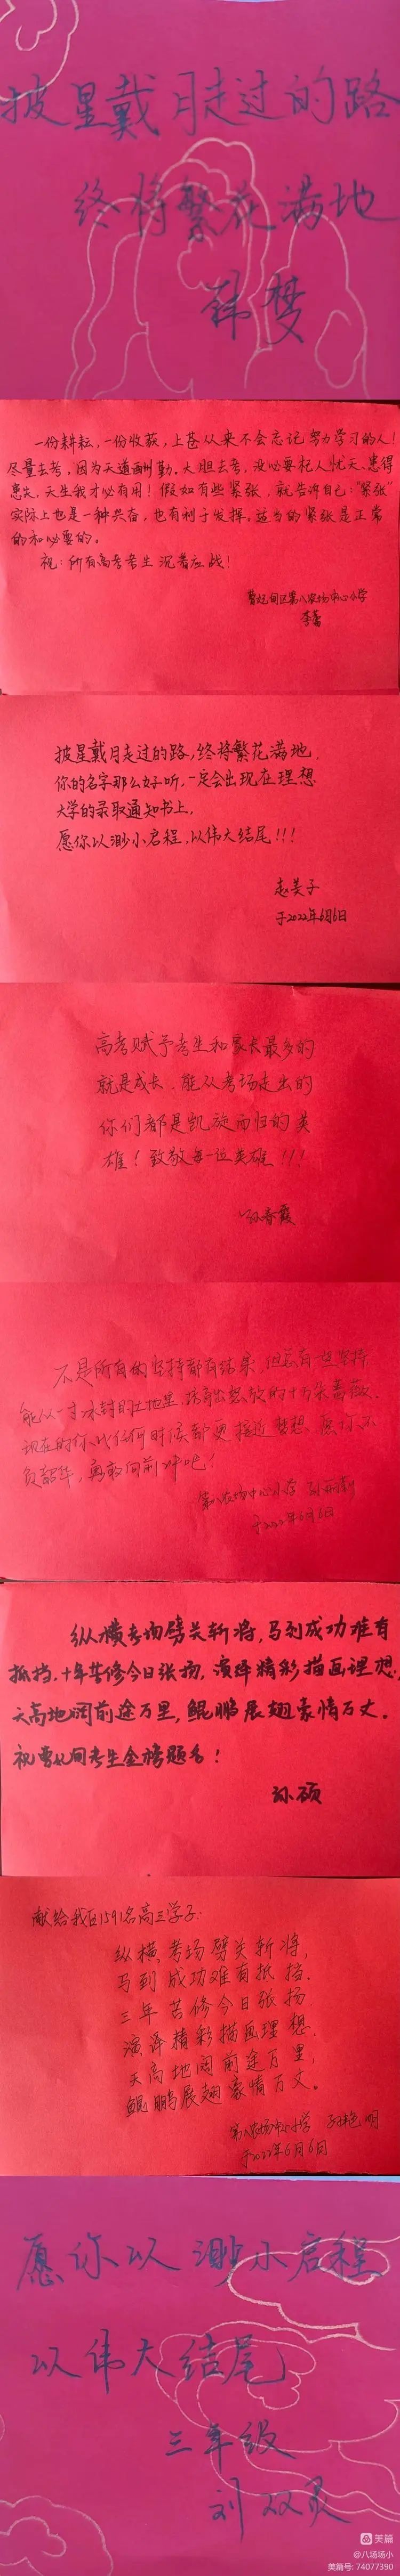 披星戴月走过的路
终将繁花满地
韩梦
一份耕耘，一份收获，上苍从来不会忘记努力学习的人！
尽量去考，因为天道酬勤。大胆去考，没必要杞人忧天、患得
患失，天生我才必有用！假如有些紧张，就告诉自己："紧张"
实际上也是一种兴奋，也有利于发挥。适当的紧张是正常
的和必要的。
祝：所有高考考生沉着应战！
曹妃甸区第八农场中心小学
李蕾
披星戴月走过的路，终将繁花满地。
你的名字那么好听，一定会出现在理想
大学的录取通知书上。
愿你以渺小启程，以伟大结尾！！！
赵美子
于2022年6月6日
高考赋予考生和家长最多的
就是成长，能从考场走出的
你们都是凯旋而归的英
雄！致敬每一位英雄！！！
孙春霞
不是所有的坚持都有结果，但总有一些坚持，
能从一寸冰封的土地里，培育出怒放的十万朵蔷薇。
现在的你，比任何时候都更接近梦想，愿你不
负韶华，勇敢向前冲吧！
第八农场中心小学 孙丽莉
于2022年6月6日
纵横考场劈关斩将，马到成功难有
抵挡。十年苦修今日张扬，演绎精彩描画理想，
天高地阔前途万里，鲲鹏展翅豪情万丈。
祝曹妃甸考生金榜题名！
孙硕
献给我区1591名高三学子：
纵横考场劈关斩将，
马到成功难有抵挡。
三年苦修今日张扬，
演译精彩描画理想。
天高地阔前途万里，
鲲鹏展翅豪情万丈。
第八农场中心小学 艳明
于2022年6月6日
愿你以渺小启程
以伟大结尾
三年级
刘双灵
美篇
@八场场小
美篇号: 74077390